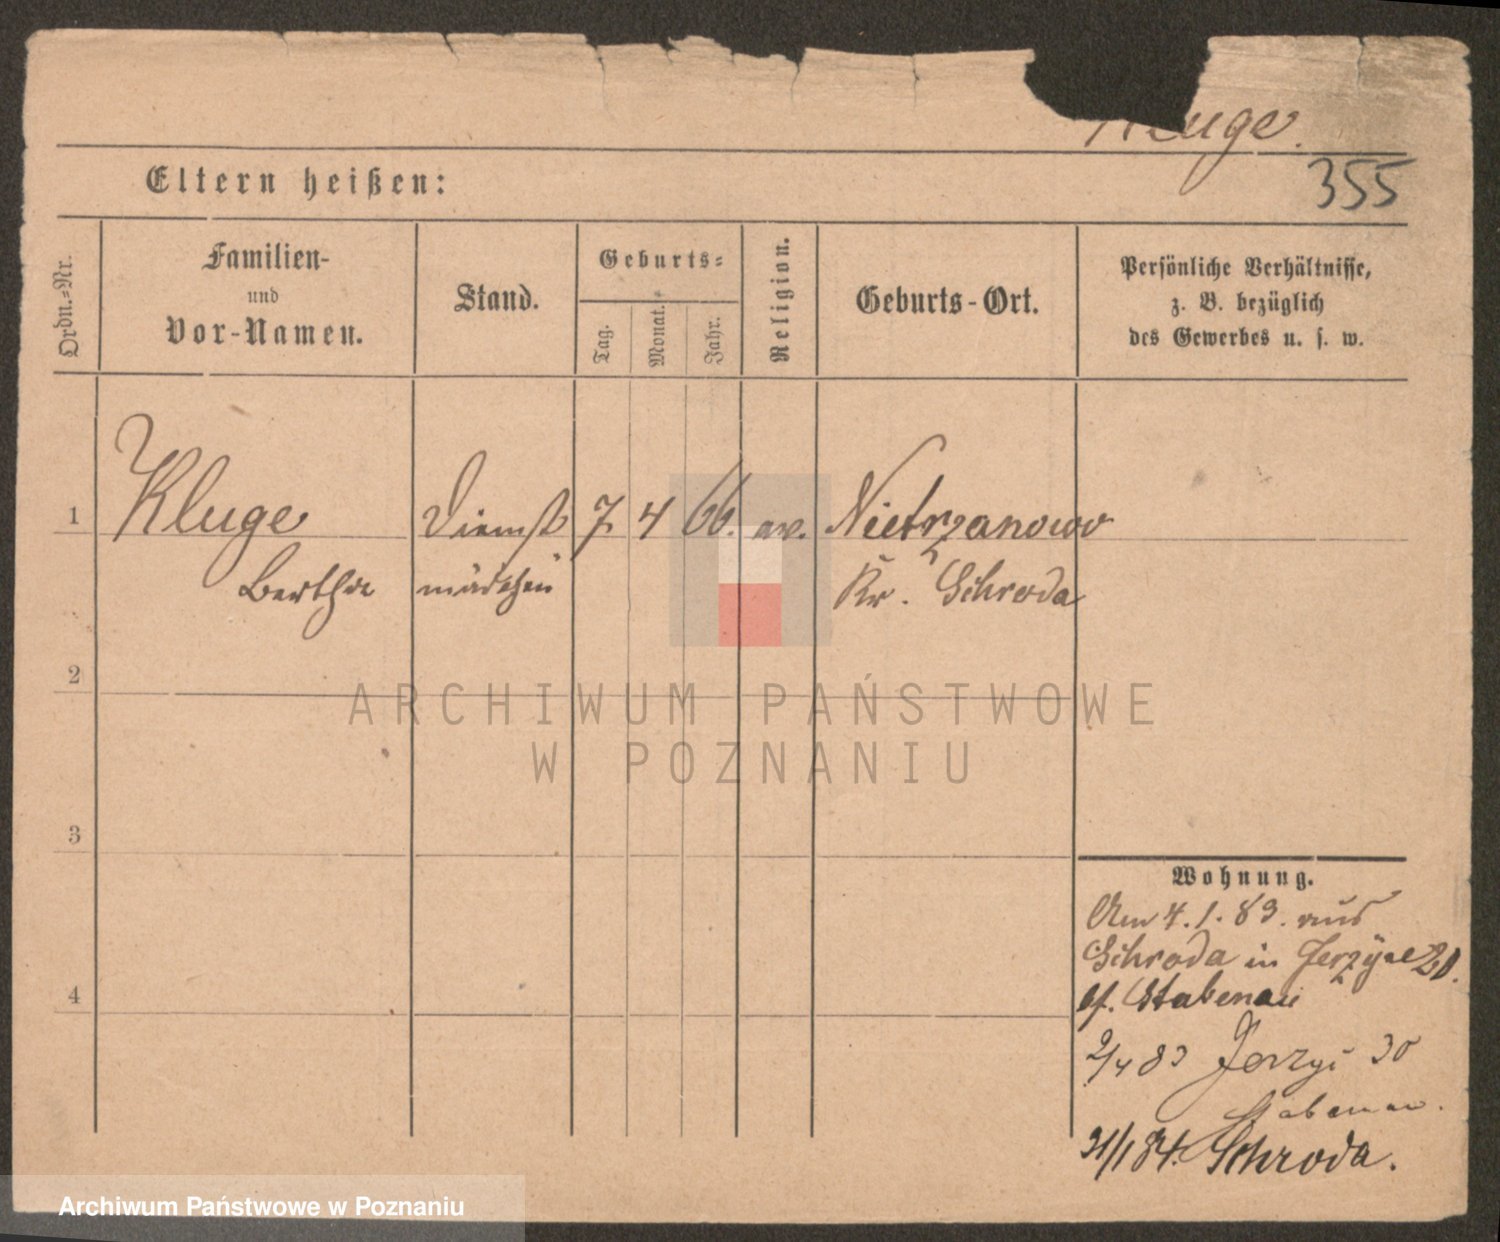 Kluge.
355
Eltern heißen:
Ordn.-Nr.
Familien-
und
Vor-Namen.
Stand.
Geburts-
Tag.
Monat.
Jahr.
Religion.
Geburts-Ort.
Persönliche Verhältnisse,
z. B. bezüglich
des Gewerbes u. s. w.
1 Kluge Dienst 7 4 66. ev. Nietrzanowo
Bertha mädchen Kr. Schroda
2
ARCHIWUM PAŃSTWOWE
W POZNANIU
3
4
Wohnung.
Am 4.1.83. aus
Schroda in
Stabenau
2/4 83 30
Stabenau.
31/1 84. Schroda.
Archiwum Państwowe w Poznaniu